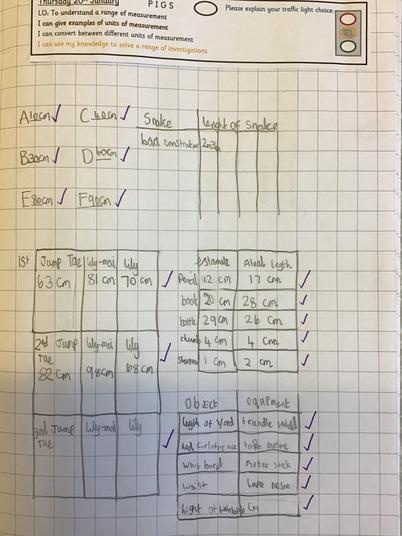 Thursday 20th January
PIGS
Please explain your traffic light choice:
LO: To understand a range of measurement
I can give examples of units of measurement
I can convert between different units of measurement
I can use my knowledge to solve a range of investigations
A10cm
B30cm
D 60cm
E80cm F90cm
Snake lenght of Snake
1st Jump Tae lily-mai lily
63 cm 81 cm 70 cm
2nd Jump lily-mai lily
Tae
82 cm 98cm
3rd Jump lily-mai lily
Tae
Estamate Atual Legth
Pencil 12 cm 17 cm
book 20 cm 28 cm
bottle 29cm 26 cm
4 cm 4 cm
1 cm 2 cm
Object equipment
legth of Yard trundle
tape mesure
Whit bord Meter stick
waist tape mesure
hight of cm